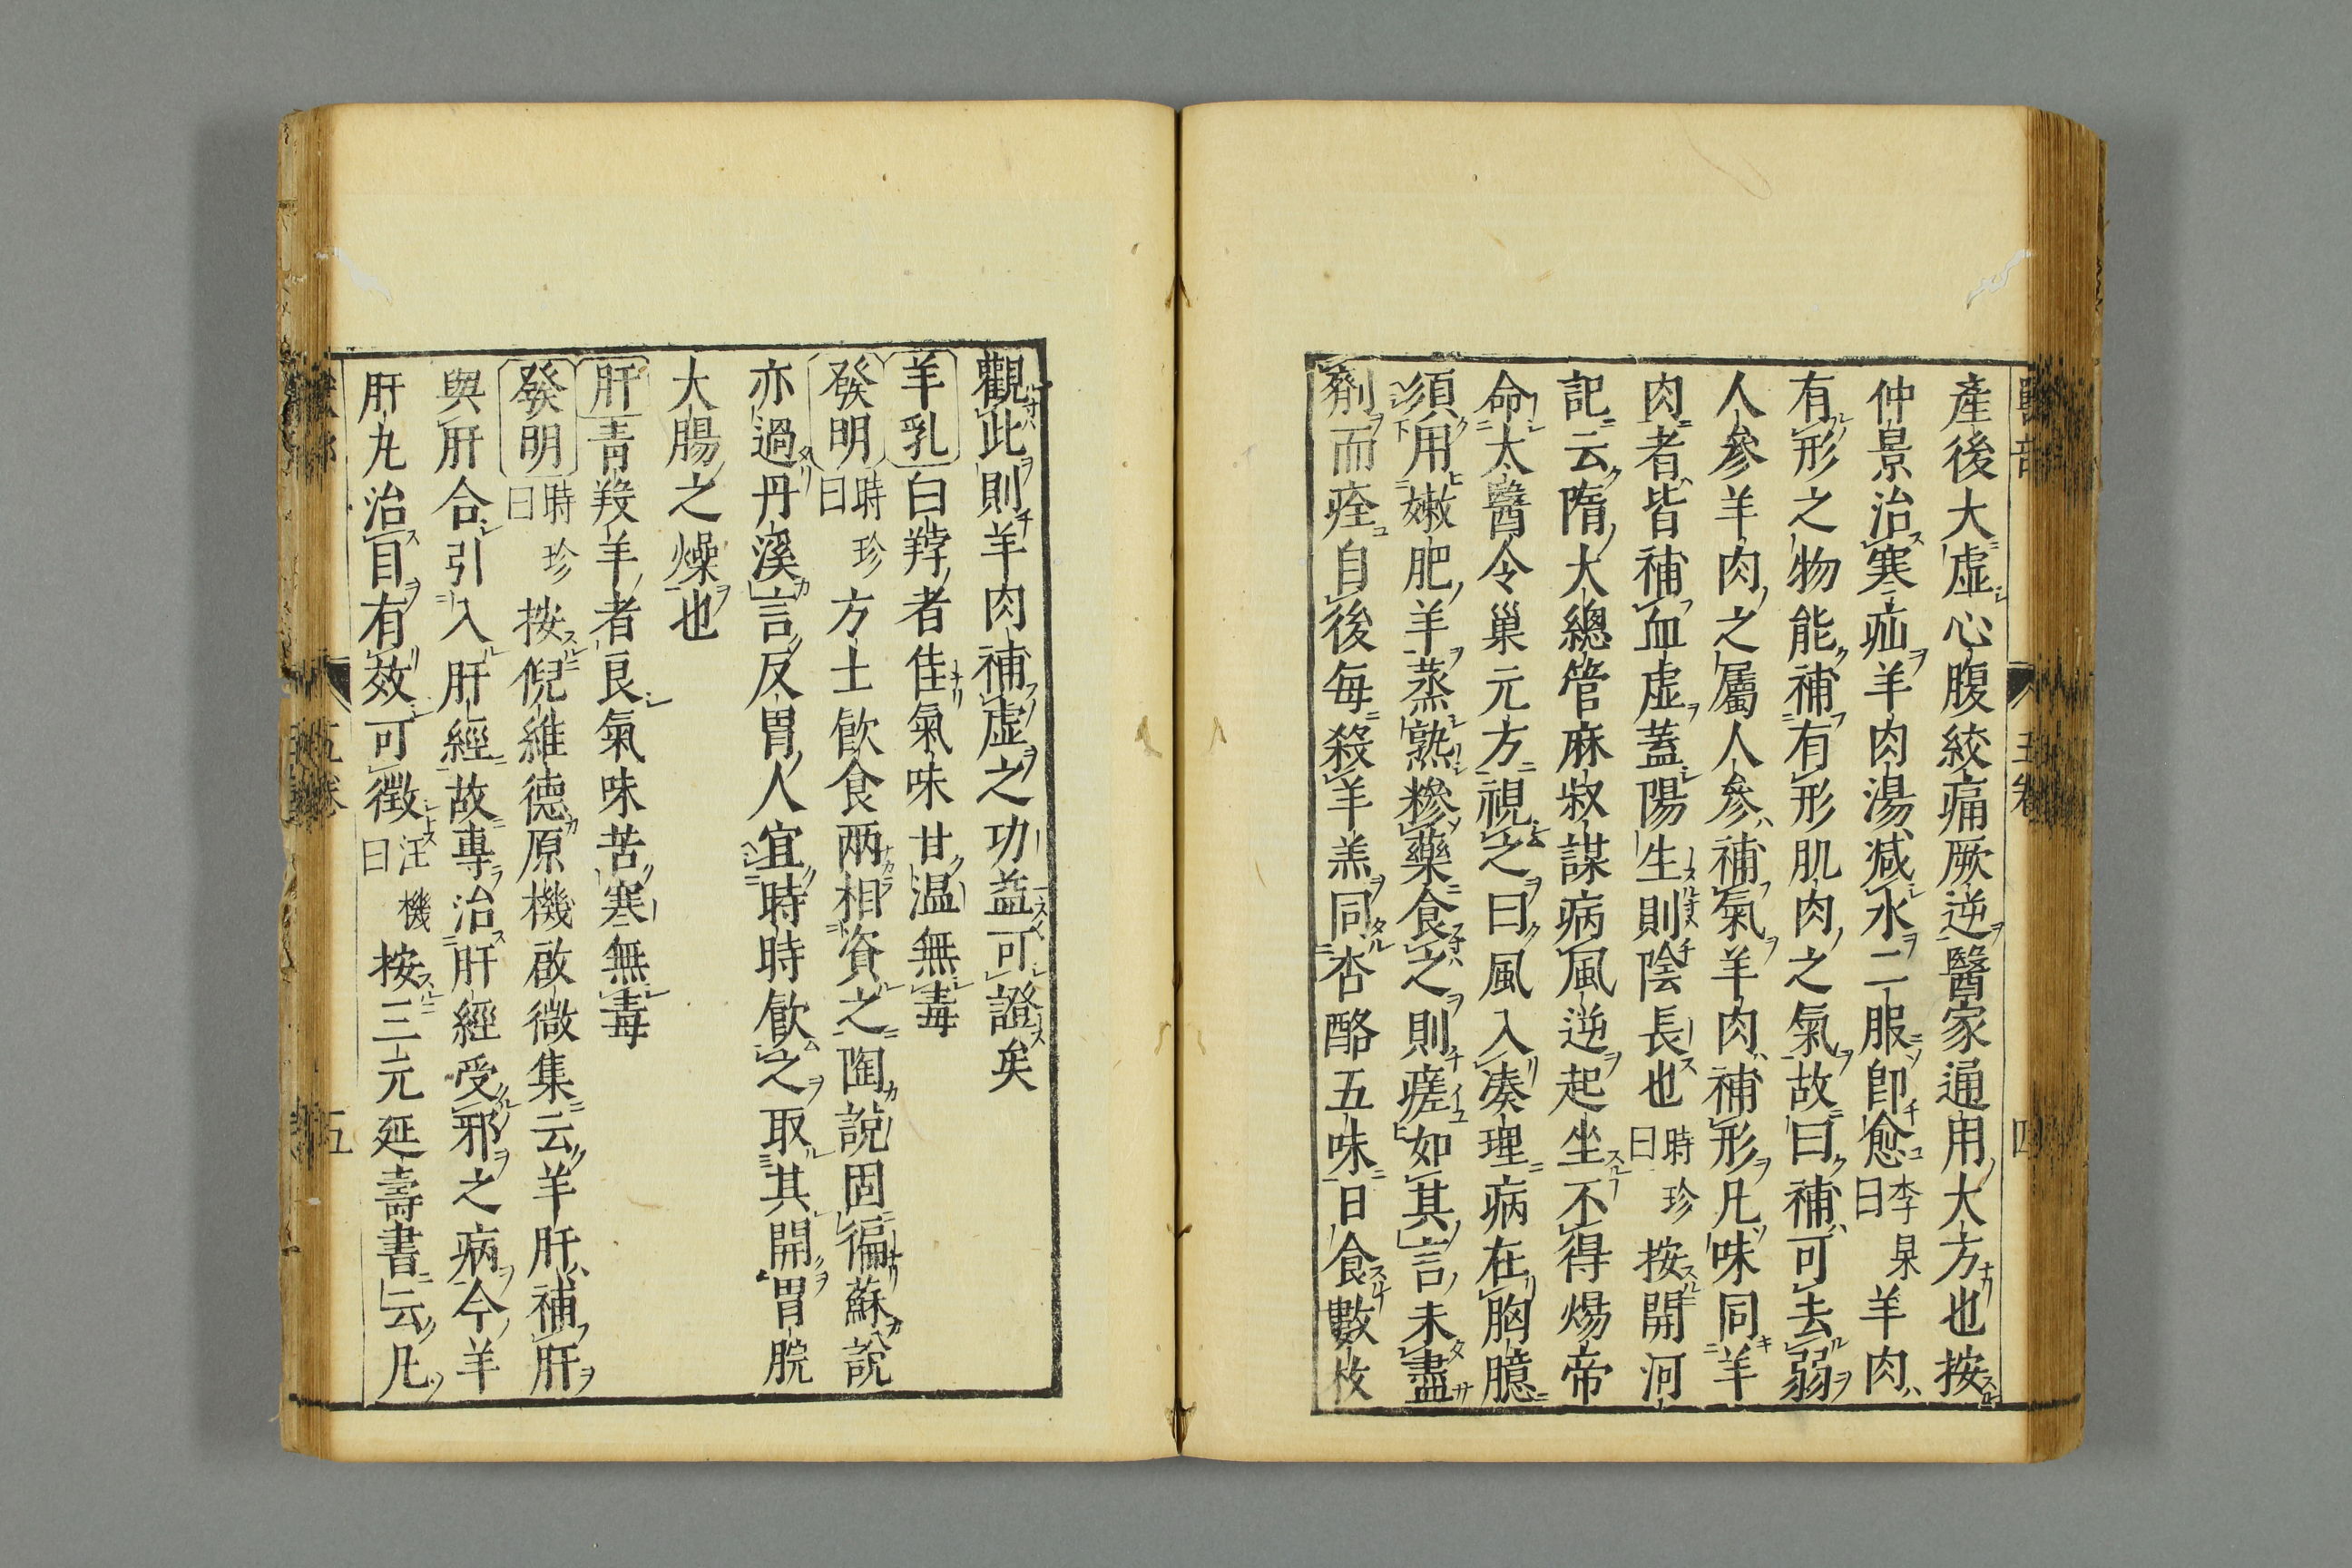 產後大虛心腹絞痛厥逆醫家通用大方也按
仲景治寒疝羊肉湯減水二服卽愈李杲曰羊肉
有形之物能補有形肌肉之氣故曰補可去弱
人參羊肉之屬人參補氣羊肉補形凡味同羊
肉者皆補血虛蓋陽生則陰長也時珍曰按開河
記云隋大總管麻叔謀病風逆起坐不得煬帝
命太醫令巢元方視之曰風入湊理病在胸臆
須用嫩肥羊蒸熟糝藥食之則瘥如其言未盡
劑而痊自後每殺羊羔同杏酪五味日食數枚
觀此則羊肉補虛之功益可證矣
羊乳白羜者佳氣味甘温無毒
發明時珍曰方士飲食兩相資之陶說固徧蘇說
亦過丹溪言反胃人宜時時飲之取其開胃脘
大腸之燥也
肝青羖羊者良氣味苦寒無毒
發明時珍曰按倪維德原機啟微集云羊肝補肝
與肝合引入肝經故專治肝經受邪之病今羊
肝丸治目有效可徵汪機曰按三元延壽書云凡